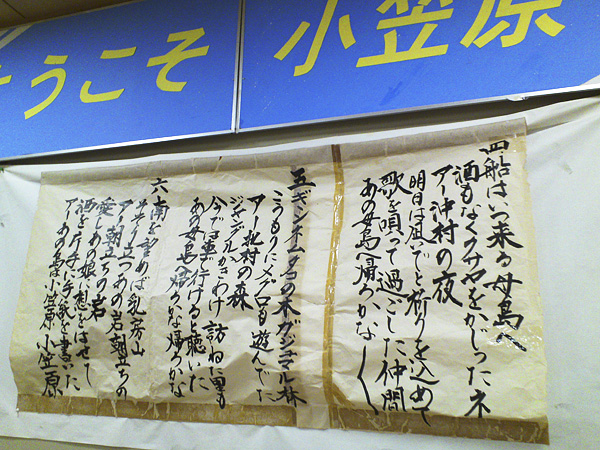 ようこそ 小笠原
四 船はいつ来る母島へ
酒もなくクサヤをかじったネ
アー沖村の夜
明日は凪いでと祈りを込めて
歌を唄って過ごした仲間
あの母島へ帰ろかな
五 ギンネムタコの木ガジュマル林
こうもりにメグロも遊んでた
アー北村の森
ジャングルかきわけ訪ねた里も
今では車で行けると聴いた
あの母島へ帰ろかな帰ろかな
六 南を望めば乳房山
そそり立つあの岩朝立ちの
アー朝立ちの岩
愛しあの娘に想をはせて
酒を片手に手紙を書いた
アーあの島は小笠原小笠原